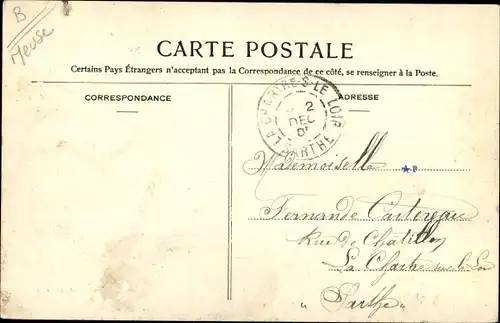 B
Meuse
CARTE POSTALE
Certains Pays Étrangers n'acceptant pas la Correspondance de ce côté, se renseigner à la Poste.
CORRESPONDANCE
ADRESSE
LA CHARTRE-S-LE LOIR
2
DEC
SARTHE
Mademoiselle
P
Fernande Castereau
Rue de Châtillon
La Chartre sur le Loir
"Sarthe"